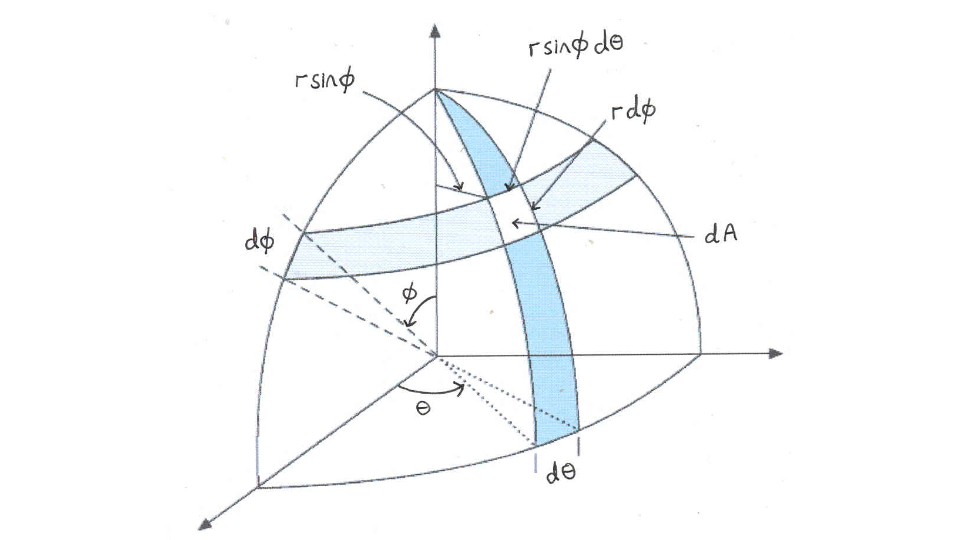 r sinϕ dθ
r sinϕ
r dϕ
dϕ
dA
ϕ
θ
dθ